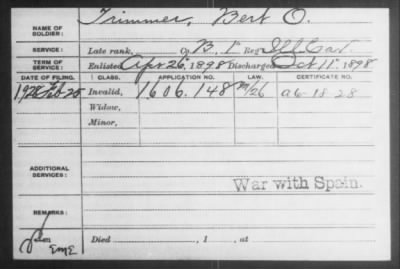 NAME OF SOLDIER: Trimmer, Bert O.
SERVICE: Late rank, Co B, 1" Reg't Ill Cav.
TERM OF SERVICE: Enlisted Apr 26, 1898 Discharged Oct 11" 1898
DATE OF FILING. CLASS. APPLICATION NO. LAW. CERTIFICATE NO.
1928 Feb 25 Invalid, 1606.148 a6-18-28
Widow,
Minor,
ADDITIONAL SERVICES:
War with Spain.
REMARKS:
Died , 1 , at